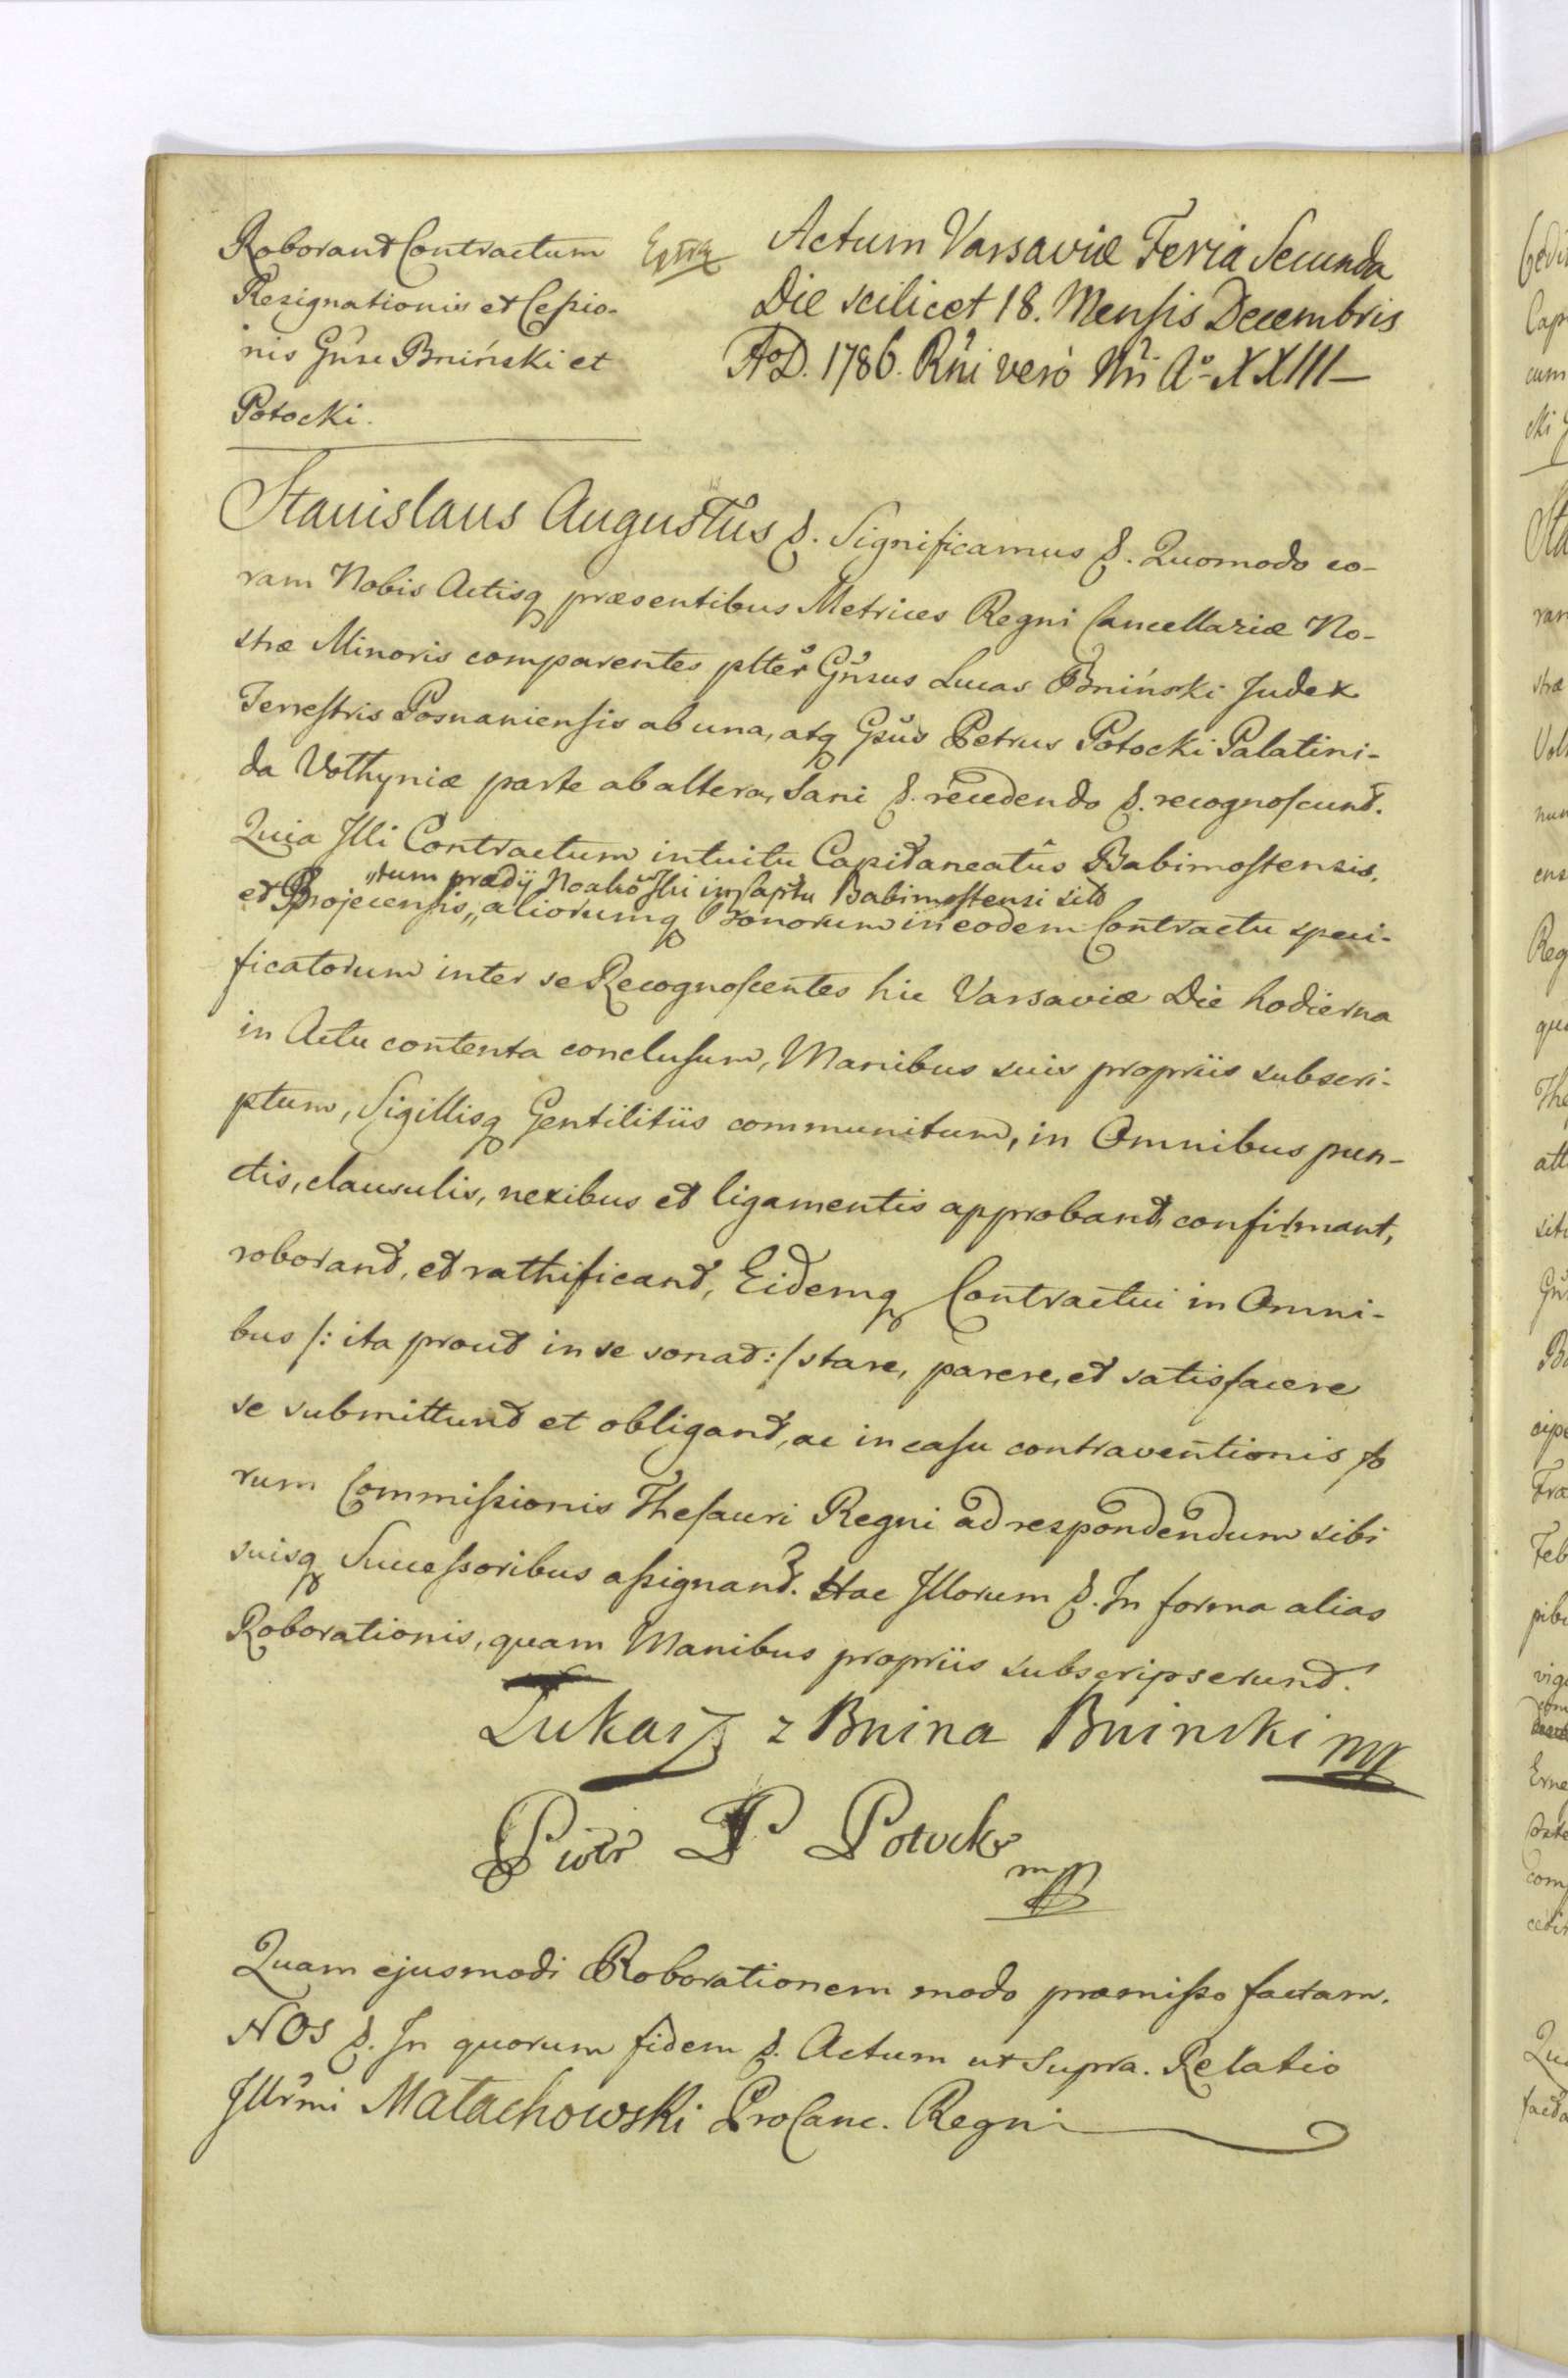 Roborant Contractum
Resignationis et Cessio-
nis Gnrs̃e Bniński et
Potocki.
Extra
Actum Varsaviæ Feria Secunda
Die scilicet 18. Mensis Decembris
AoD. 1786. Rñi verò Nri Ao XXIII
Stanislaus Augustus &. Significamus &. Quomodo co-
ram Nobis Actisq præsentibus Metrices Regni Cancellariæ No-
stræ Minoris comparentes pltẽr Gñrsus Lucas Bniński Judex
Terrestris Posnaniensis ab una, atq Grsus Petrus Potocki Palatini-
da Vothyniæ parte ab altera, Sani &. recedendo &. recognoscunt.
Quia Illi Contractum intuitu Capitaneatûs Babimostensis,
"tum prædij in Captu Babimostensi sit
et Brojecensis,, aliorumq Bonorum in eodem Contractu speci-
ficatorum inter se Recognoscentes hic Varsaviæ Die hodierna
in Actu contenta conclusum, Manibus suis propriis subscri-
ptum, Sigillisq Gentilitiis communitum, in Omnibus pun-
ctis, clausulis, nexibus et ligamentis approbant, confirmant,
roborant, et rathificant, Eidemq Contractui in Omni-
bus /: ita prout in se sonat :/ stare, parere, et satisfacere
se submittunt et obligant, ac in casu contraventionis fo
rum Commissionis Thesauri Regni ad respondendum sibi
suisq Successoribus assignant. Hac Illorum &. In forma alias
Roborationis, quam Manibus propriis subscripserunt.
Łukasz z Bnina Bninski mp
Piotr P Potocki
mp
Quam ejusmodi Roborationem modo præmisso factam.
NOS &. In quorum fidem &. Actum ut Supra. Relatio
Illr̃mi Małachowski ProCanc. Regni